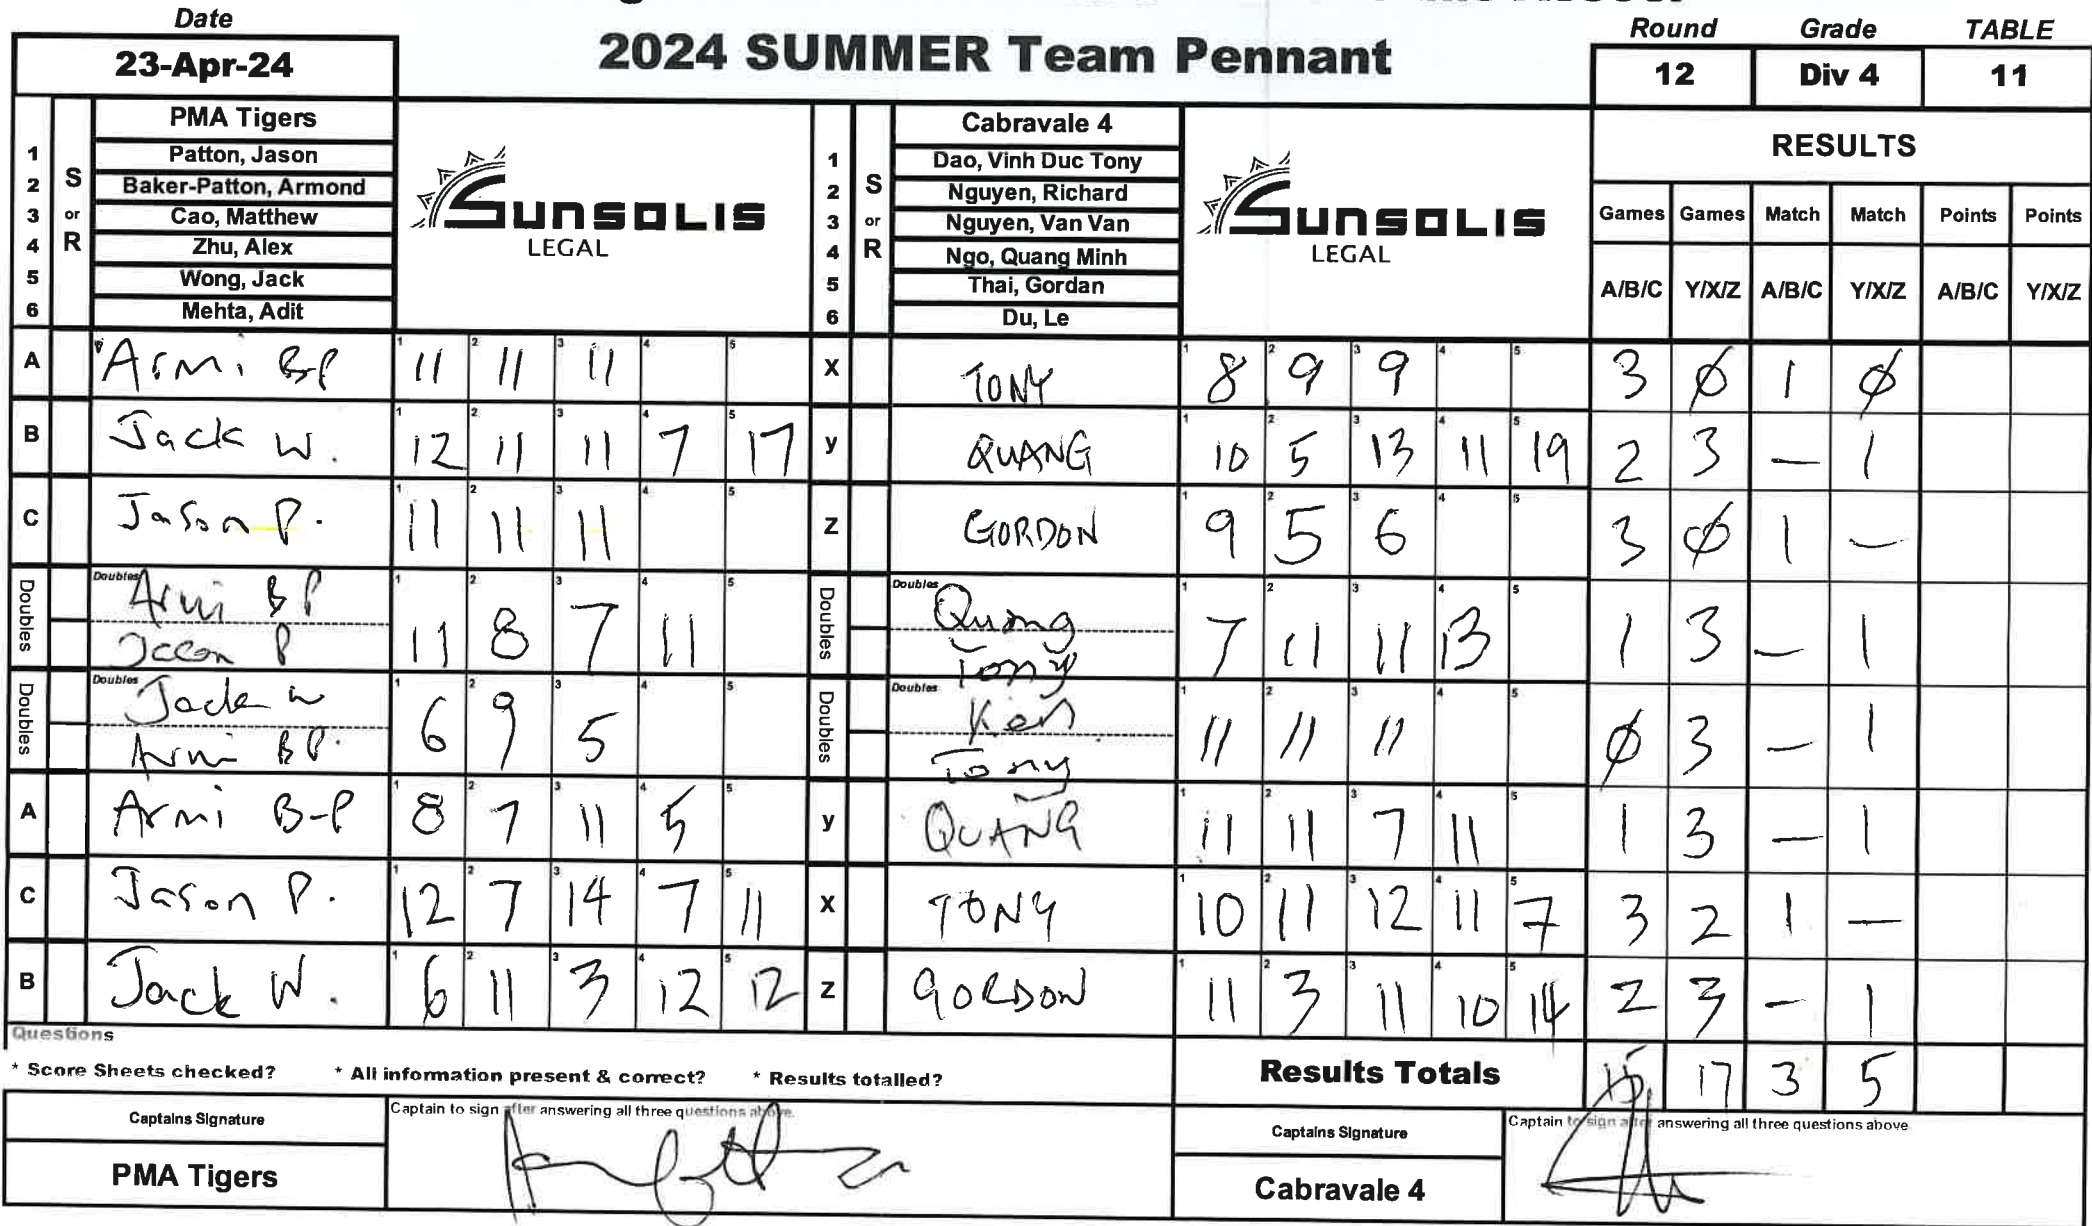 Date
23-Apr-24
2024 SUMMER Team Pennant
Round Grade TABLE
12 Div 4 11
1 2 3 4 5 6
S or R
PMA Tigers
Patton, Jason
Baker-Patton, Armond
Cao, Matthew
Zhu, Alex
Wong, Jack
Mehta, Adit
SUNSOLIS
LEGAL
1 2 3 4 5 6
S or R
Cabravale 4
Dao, Vinh Duc Tony
Nguyen, Richard
Nguyen, Van Van
Ngo, Quang Minh
Thai, Gordan
Du, Le
SUNSOLIS
LEGAL
RESULTS
Games Games Match Match Points Points
A/B/C Y/X/Z A/B/C Y/X/Z A/B/C Y/X/Z
A Armi BP 11 11 11 X TONY 8 9 9 3 Ø 1 Ø
B Jack W. 12 11 11 7 17 y QUANG 10 5 13 11 19 2 3 – 1
C Jason P. 11 11 11 Z GORDON 9 5 6 3 Ø 1 –
Doubles Doubles Armi BP 11 8 7 11 Doubles Doubles Quang 7 11 11 13 1 3 – 1
P Tony
Doubles Doubles Jack W 6 9 5 Doubles Doubles 11 11 11 Ø 3 – 1
Armi BP. Tony
A Armi B-P 8 7 11 5 y QUANG 11 11 7 11 1 3 – 1
C Jason P. 12 7 14 7 11 X TONY 10 11 12 11 7 3 2 1 –
B Jack W. 6 11 3 12 12 Z GORDON 11 3 11 10 14 2 3 – 1
Questions
* Score Sheets checked? * All information present & correct? * Results totalled?
Results Totals 15 17 3 5
Captains Signature
Captain to sign after answering all three questions above.
PMA Tigers
Captains Signature
Captain to sign after answering all three questions above
Cabravale 4